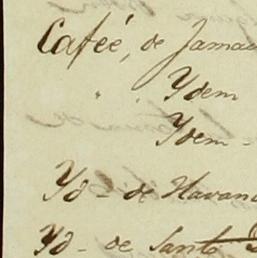 Cafeé, de Jamai
" " Ydem
Ydem -
Yd - de Havan
Yd - de Santo